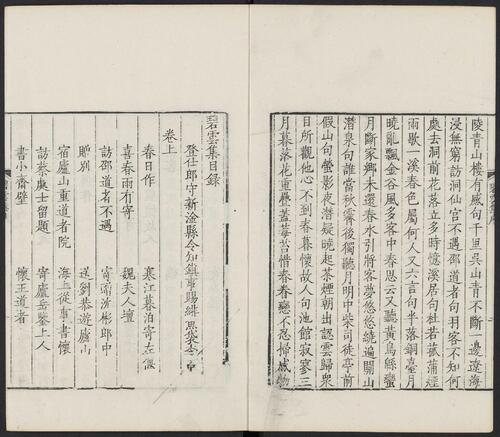 陵青山樓有感句千里吳山青不斷一邊遼海
浸無窮訪洞仙宮不遇邵道者句羽客不知何
處去洞前花落立多時憶溪居句杜若菰蒲煙
雨歇一溪春色屬何人又六言句半落銅臺月
曉亂飄金谷風多客中春思云又聽黃鳥緜蠻
月斷家鄉未還春水引將客夢悠悠繞遍關山
潛泉句誰當秋霽後獨聽月明中柴司徒亭前
假山句螢影夜潛疑曉起茶煙朝出認雲歸眾
目所觀他心不到春暮懷故人句池館寂寥三
月暮落花重疊蓋莓苔惜春春戀不忍掃感物
碧雲集目錄
登仕郎守新淦縣令知鎮事賜緋
卷上
春日作
寒江暮泊寄左偃
喜春雨有寄
魏夫人壇
訪邵道者不遇
寄南沈彬郎中
贈別
送劉恭遊廬山
宿廬山重道者院
海上從事書懷
訪蔡處士留題
寄廬岳鑒上人
書小齋壁
懷王道者